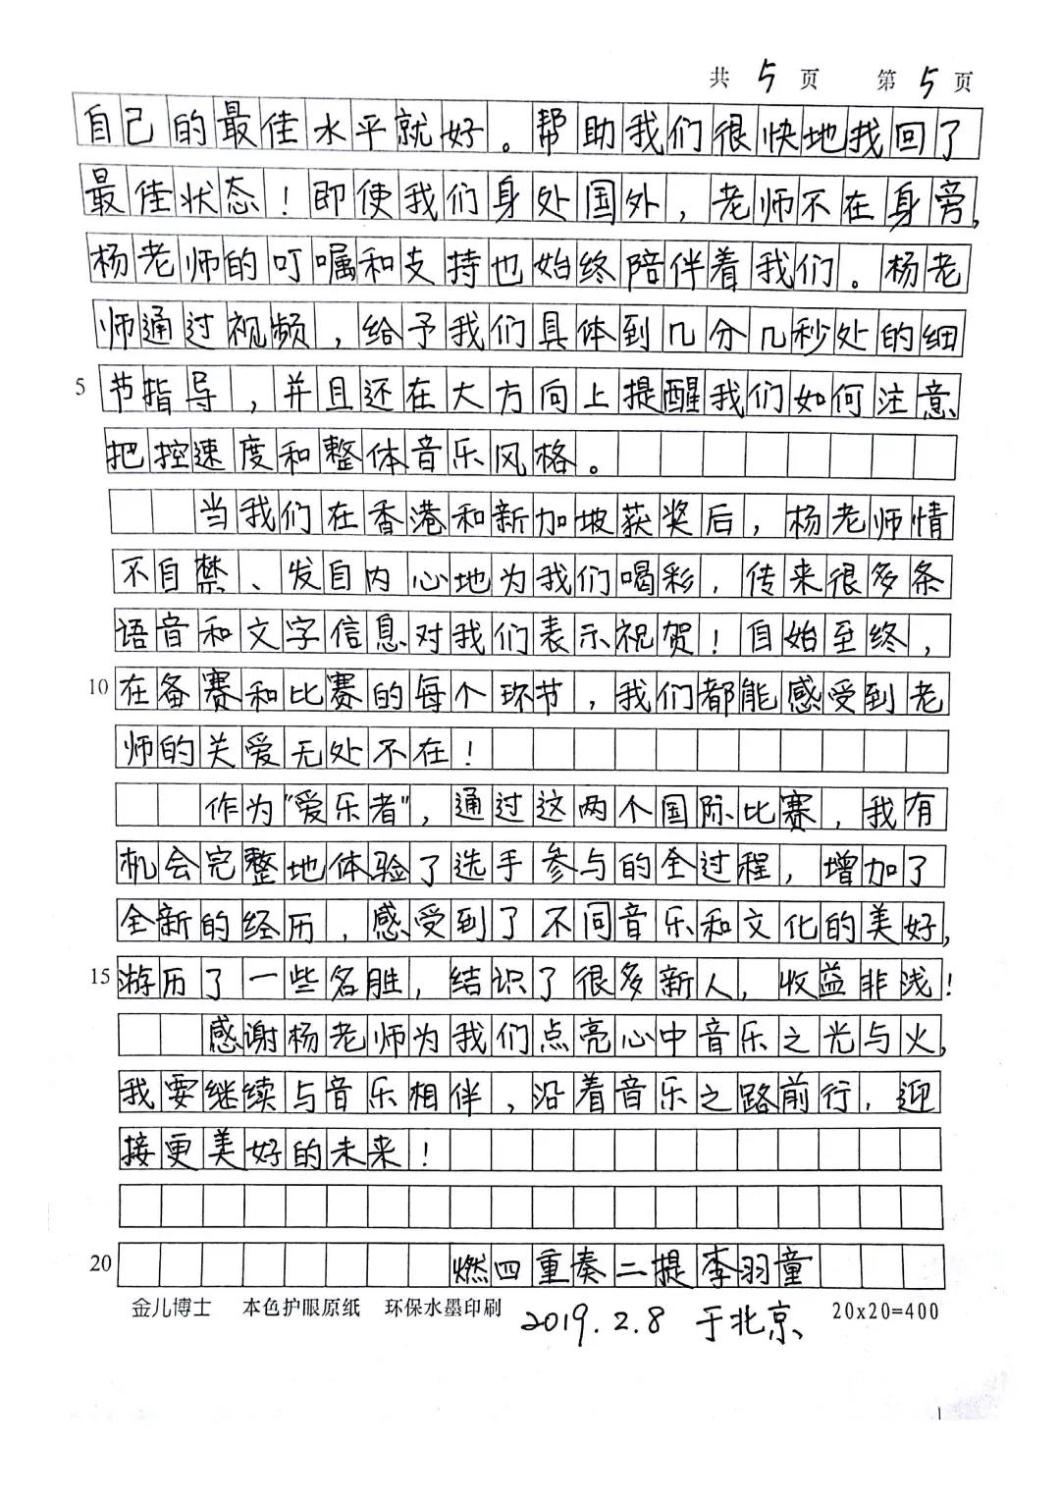 共 5 页 第 5 页
自己的最佳水平就好。帮助我们很快地找回了
最佳状态！即使我们身处国外，老师不在身旁，
杨老师的叮嘱和支持也始终陪伴着我们。杨老
师通过视频，给予我们具体到几分几秒处的细
5 节指导，并且还在大方向上提醒我们如何注意
把控速度和整体音乐风格。
当我们在香港和新加坡获奖后，杨老师情
不自禁、发自内心地为我们喝彩，传来很多条
语音和文字信息对我们表示祝贺！自始至终，
10 在备赛和比赛的每个环节，我们都能感受到老
师的关爱无处不在！
作为"爱乐者"，通过这两个国际比赛，我有
机会完整地体验了选手参与的全过程，增加了
全新的经历，感受到了不同音乐和文化的美好，
15 游历了一些名胜，结识了很多新人，收益非浅！
感谢杨老师为我们点亮心中音乐之光与火，
我要继续与音乐相伴，沿着音乐之路前行，迎
接更美好的未来！
20 燃四重奏二提李羽童
金儿博士 本色护眼原纸 环保水墨印刷 2019.2.8 于北京 20x20=400
1